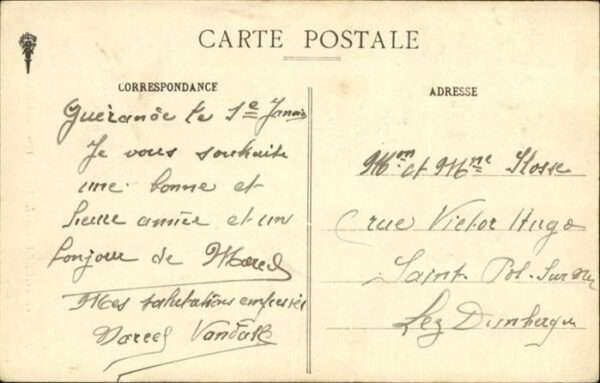 CARTE POSTALE
CORRESPONDANCE
ADRESSE
Guérande le 1e Janvier
Je vous souhaite
une bonne et
heureuse année et un
bonjour de Marcel
Mes salutations empressées
Marcel
Mm et Mme
rue Victor Hugo
Saint Pol Sur Mer
Lez Dunkerque